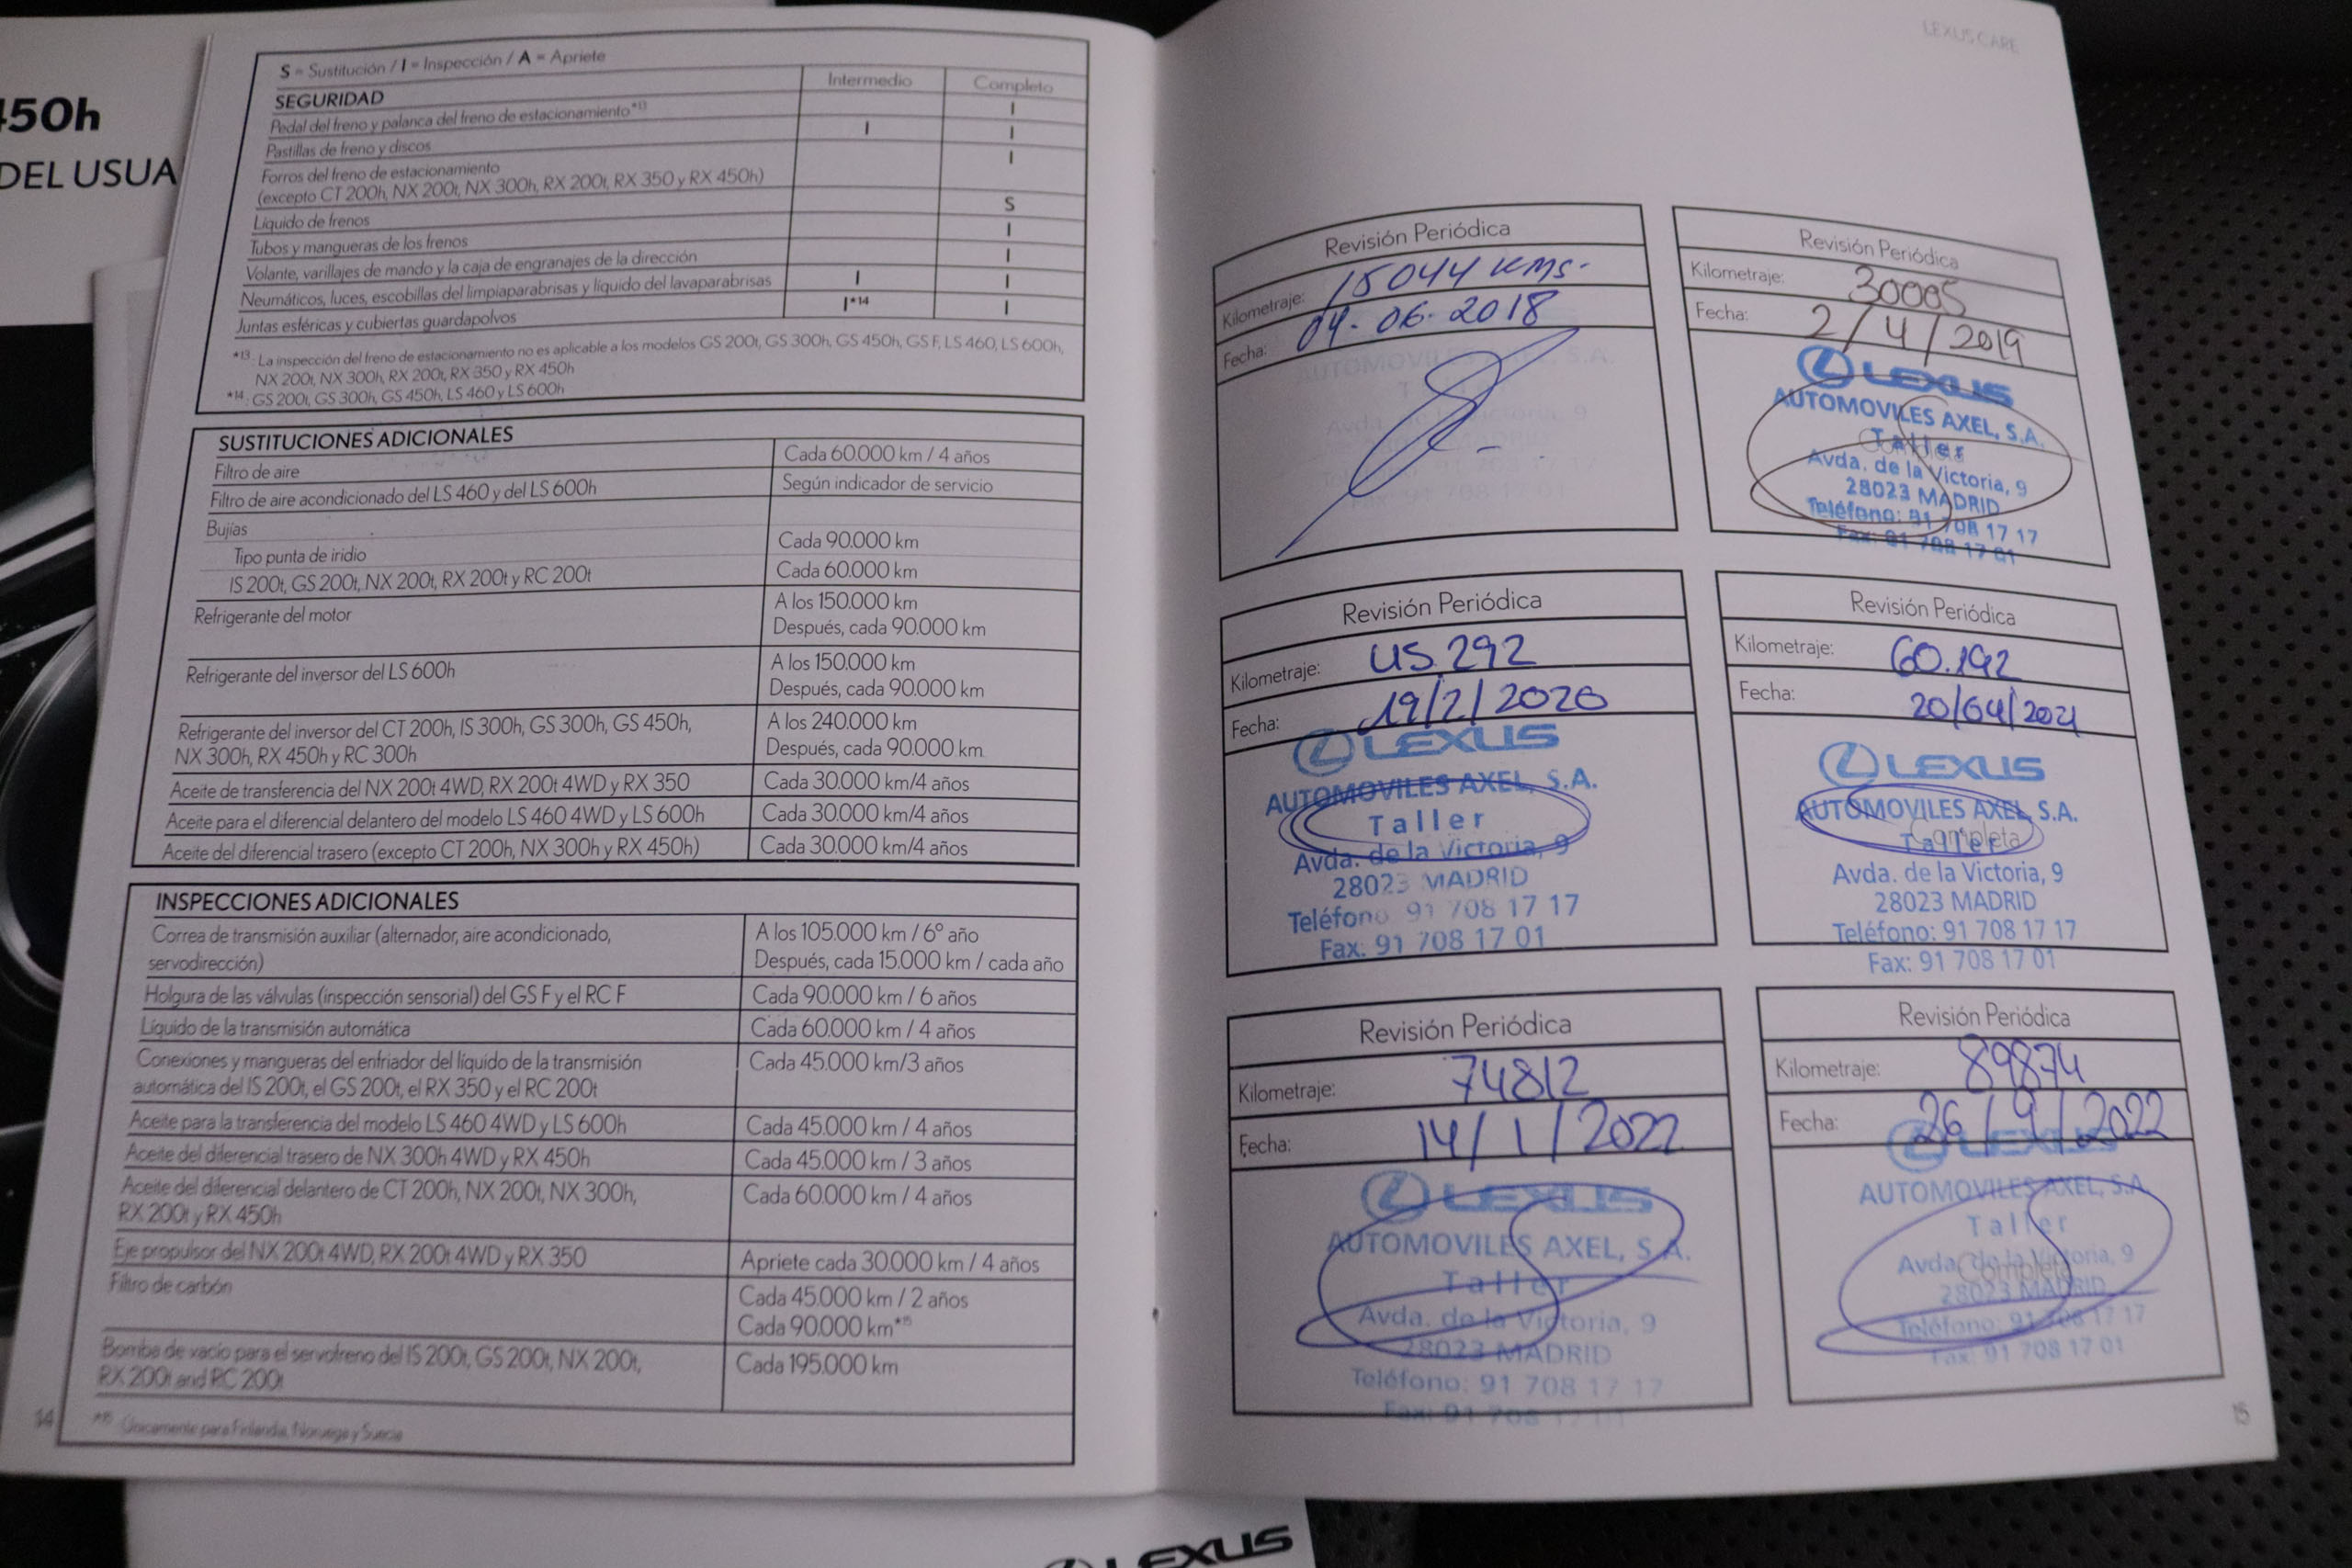 450h
DEL USUA
S = Sustitución / I = Inspección / A = Apriete
SEGURIDAD Intermedio Completo
Pedal del freno y palanca del freno de estacionamiento*13 I
Pastillas de freno y discos I I
Forros del freno de estacionamiento I
(excepto CT 200h, NX 200t, NX 300h, RX 200t, RX 350 y RX 450h)
Líquido de frenos S
Tubos y mangueras de los frenos I
Volante, varillajes de mando y la caja de engranajes de la dirección I
Neumáticos, luces, escobillas del limpiaparabrisas y líquido del lavaparabrisas I I
Juntas esféricas y cubiertas guardapolvos I*14 I
*13: La inspección del freno de estacionamiento no es aplicable a los modelos GS 200t, GS 300h, GS 450h, GS F, LS 460, LS 600h,
NX 200t, NX 300h, RX 200t, RX 350 y RX 450h
*14: GS 200t, GS 300h, GS 450h, LS 460 y LS 600h
SUSTITUCIONES ADICIONALES
Filtro de aire Cada 60.000 km / 4 años
Filtro de aire acondicionado del LS 460 y del LS 600h Según indicador de servicio
Bujías
Tipo punta de iridio Cada 90.000 km
IS 200t, GS 200t, NX 200t, RX 200t y RC 200t Cada 60.000 km
Refrigerante del motor A los 150.000 km
Después, cada 90.000 km
Refrigerante del inversor del LS 600h A los 150.000 km
Después, cada 90.000 km
Refrigerante del inversor del CT 200h, IS 300h, GS 300h, GS 450h, A los 240.000 km
NX 300h, RX 450h y RC 300h Después, cada 90.000 km
Aceite de transferencia del NX 200t 4WD, RX 200t 4WD y RX 350 Cada 30.000 km/4 años
Aceite para el diferencial delantero del modelo LS 460 4WD y LS 600h Cada 30.000 km/4 años
Aceite del diferencial trasero (excepto CT 200h, NX 300h y RX 450h) Cada 30.000 km/4 años
INSPECCIONES ADICIONALES
Correa de transmisión auxiliar (alternador, aire acondicionado, A los 105.000 km / 6º año
servodirección) Después, cada 15.000 km / cada año
Holgura de las válvulas (inspección sensorial) del GS F y el RC F Cada 90.000 km / 6 años
Líquido de la transmisión automática Cada 60.000 km / 4 años
Conexiones y mangueras del enfriador del líquido de la transmisión Cada 45.000 km/3 años
automática del IS 200t, el GS 200t, el RX 350 y el RC 200t
Aceite para la transferencia del modelo LS 460 4WD y LS 600h Cada 45.000 km / 4 años
Aceite del diferencial trasero de NX 300h 4WD y RX 450h Cada 45.000 km / 3 años
Aceite del diferencial delantero de CT 200h, NX 200t, NX 300h, Cada 60.000 km / 4 años
RX 200t y RX 450h
Eje propulsor del NX 200t 4WD, RX 200t 4WD y RX 350 Apriete cada 30.000 km / 4 años
Filtro de carbón Cada 45.000 km / 2 años
Cada 90.000 km*15
Bomba de vacío para el servofreno del IS 200t, GS 200t, NX 200t, Cada 195.000 km
RX 200t and RC 200t
*15 Únicamente para Finlandia, Noruega y Suecia
14
LEXUS CARE
Revisión Periódica
Kilometraje: 15044 KMS.
Fecha: 04.06.2018
Revisión Periódica
Kilometraje: 30005
Fecha: 2/4/2019
LEXUS
AUTOMOVILES AXEL, S.A.
Taller
Completa
Avda. de la Victoria, 9
28023 MADRID
Teléfono: 91 708 17 17
Fax: 91 708 17 01
Revisión Periódica
Kilometraje: 45.292
Fecha: 19/2/2020
LEXUS
AUTOMOVILES AXEL, S.A.
Taller
Avda. de la Victoria, 9
28023 MADRID
Teléfono 91 708 17 17
Fax: 91 708 17 01
Revisión Periódica
Kilometraje: 60.192
Fecha: 20/04/2021
LEXUS
AUTOMOVILES AXEL, S.A.
Completa
Taller
Avda. de la Victoria, 9
28023 MADRID
Teléfono: 91 708 17 17
Fax: 91 708 17 01
Revisión Periódica
Kilometraje: 74812
Fecha: 14/1/2022
LEXUS
AUTOMOVILES AXEL, S.A.
Taller
Avda. de la Victoria, 9
28023 MADRID
Teléfono: 91 708 17 17
Fax: 91 708 17 01
Revisión Periódica
Kilometraje: 89874
Fecha: 26/9/2022
LEXUS
AUTOMOVILES AXEL, S.A.
Taller
Avda. de la Victoria, 9
Completa
28023 MADRID
Teléfono: 91 708 17 17
Fax: 91 708 17 01
15
LEXUS